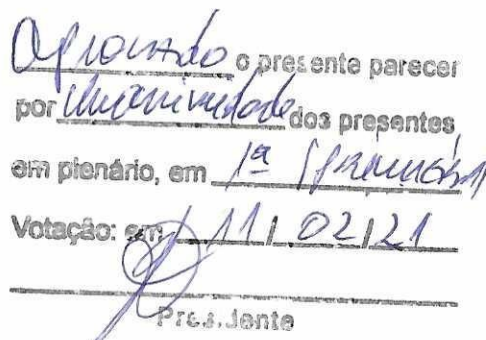 Aprovado o presente parecer
por Unanimidade dos presentes
em plenário, em 1ª
Votação: em 11/02/21
Presidente